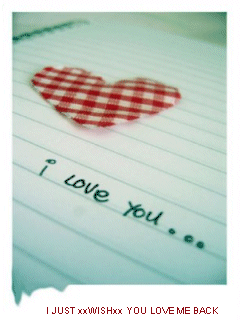 i love you...
I JUST xxWISHxx YOU LOVE ME BACK